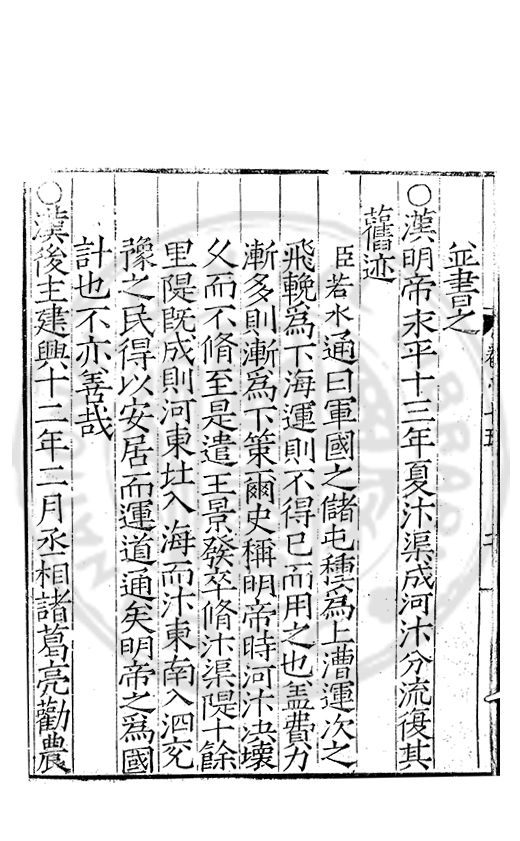 並書之
○漢明帝永平十三年夏汴渠成河汴分流復其
舊迹
臣若水通曰軍國之儲屯種為上漕運次之
飛輓為下海運則不得已而用之也盖費力
漸多則漸為下策爾史稱明帝時河汴决壊
乆而不脩至是遣王景發卒脩汴渠隄十餘
里隄既成則河東北入海而汴東南入泗兖
豫之民得以安居而運道通矣明帝之為國
計也不亦善哉
○漢後主建興十二年二月丞相諸葛亮勸農